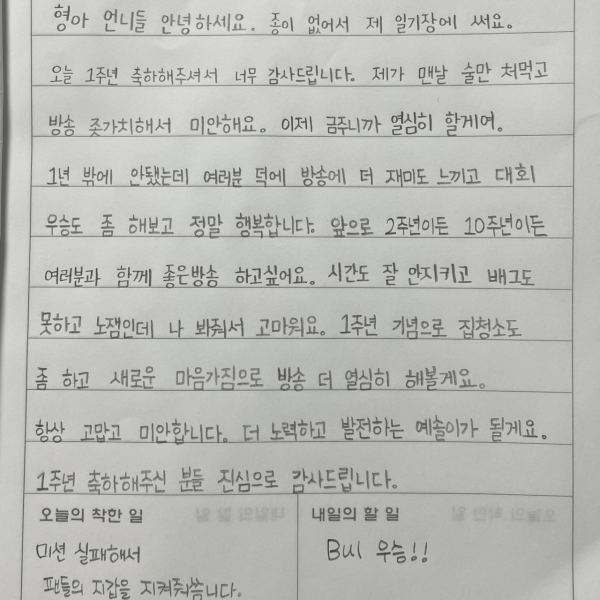 형아 언니들 안녕하세요. 종이 없어서 제 일기장에 써요.
오늘 1주년 축하해주셔서 너무 감사드립니다. 제가 맨날 술만 처먹고
방송 좃가치해서 미안해요. 이제 금주니까 열심히 할게여.
1년 밖에 안됐는데 여러분 덕에 방송에 더 재미도 느끼고 대회
우승도 좀 해보고 정말 행복합니다. 앞으로 2주년이든 10주년이든
여러분과 함께 좋은방송 하고싶어요. 시간도 잘 안지키고 배그도
못하고 노잼인데 나 봐줘서 고마워요. 1주년 기념으로 집청소도
좀 하고 새로운 마음가짐으로 방송 더 열심히 해볼게요.
항상 고맙고 미안합니다. 더 노력하고 발전하는 예솔이가 될게요.
1주년 축하해주신 분들 진심으로 감사드립니다.
오늘의 착한 일
미션 실패해서
팬들의 지갑을 지켜줘씀니다.
내일의 할 일
BUl 우승!!